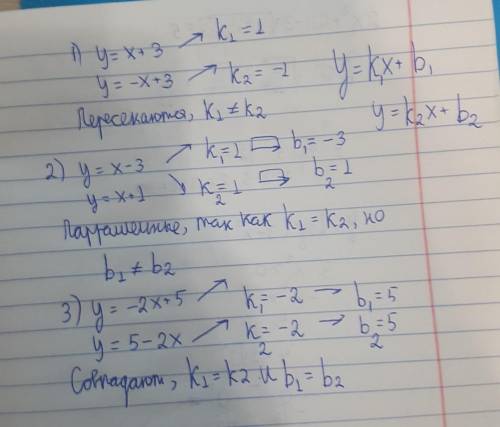 1) y = x + 3 → k₁ = 1
y = -x + 3 → k₂ = -1
y = k₁x + b₁
Пересекаются, k₁ ≠ k₂
y = k₂x + b₂
2) y = x - 3 → k₁ = 1 ⇒ b₁ = -3
y = x + 1 → k₂ = 1 ⇒ b₂ = 1
Параллельные, так как k₁ = k₂, но
b₁ ≠ b₂
3) y = -2x + 5 → k₁ = -2 → b₁ = 5
y = 5 - 2x → k₂ = -2 → b₂ = 5
Совпадают, k₁ = k₂ и b₁ = b₂